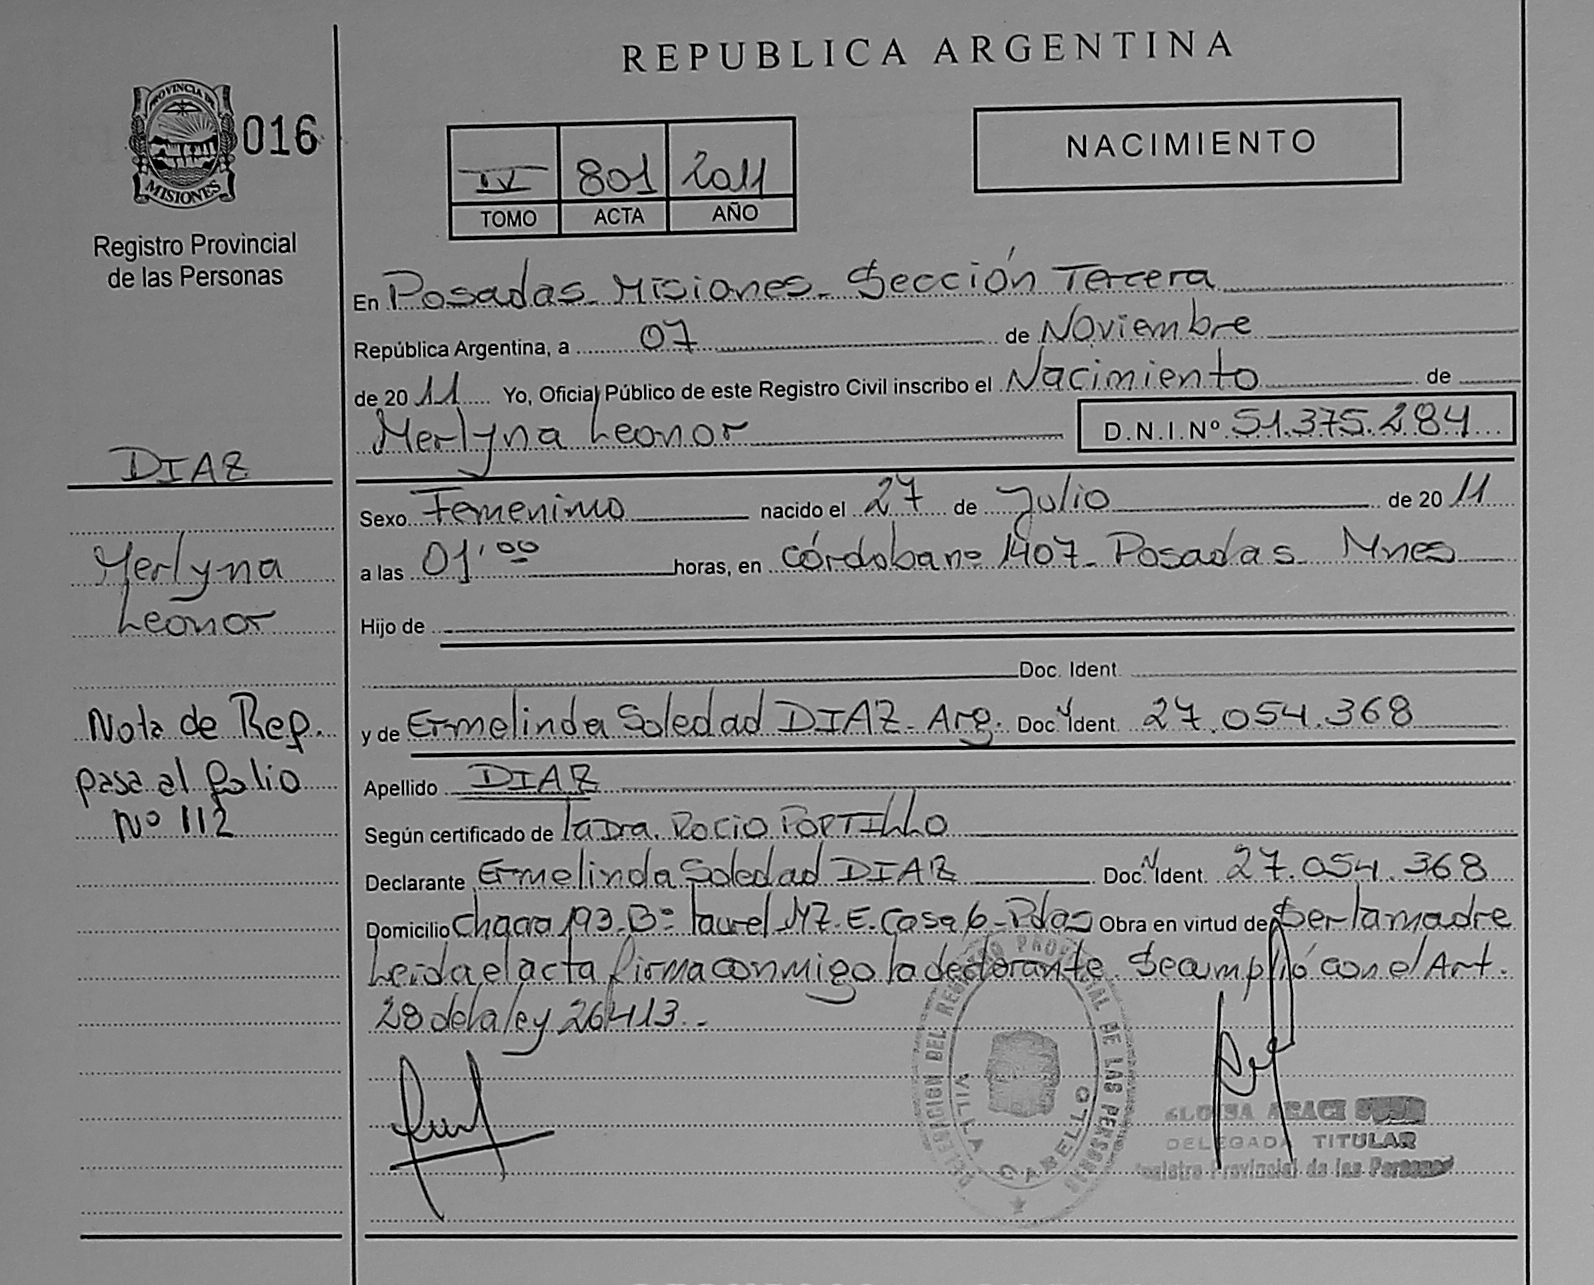 REPUBLICA ARGENTINA
PROVINCIA DE
MISIONES
016
Registro Provincial
de las Personas
IV 801 2011
TOMO ACTA AÑO
NACIMIENTO
En Posadas - Misiones - Sección Tercera
República Argentina, a 07 de Noviembre
de 2011 Yo, Oficial Público de este Registro Civil inscribo el Nacimiento de
Merlyna Leonor D.N.I.Nº 51.375.284
DIAZ
Sexo Femenino nacido el 27 de Julio de 2011
Merlyna
Leonor
a las 01'00 horas, en córdoba nº 1407 - Posadas - Mnes
Hijo de
Doc. Ident.
Nota de Rep.
pasa al folio
Nº 112
y de Ermelinda Soledad DIAZ - Arg. Doc. Ident. 27.054.368
Apellido DIAZ
Según certificado de la Dra. Rocio PORTILLO
Declarante Ermelinda Soledad DIAZ Doc. Ident. 27.054.368
Domicilio Chacra 193 - Bº laurel MZ. E. Casa 6 - Pdas Obra en virtud de Ser la madre
Leída el acta firma conmigo la declarante Se cumplió con el Art.
28 de la ley 26413.-
DELEGACION DEL REGISTRO PROVINCIAL DE LAS PERSONAS
VILLA CABELLO
DELEGADA TITULAR
Registro Provincial de las Personas